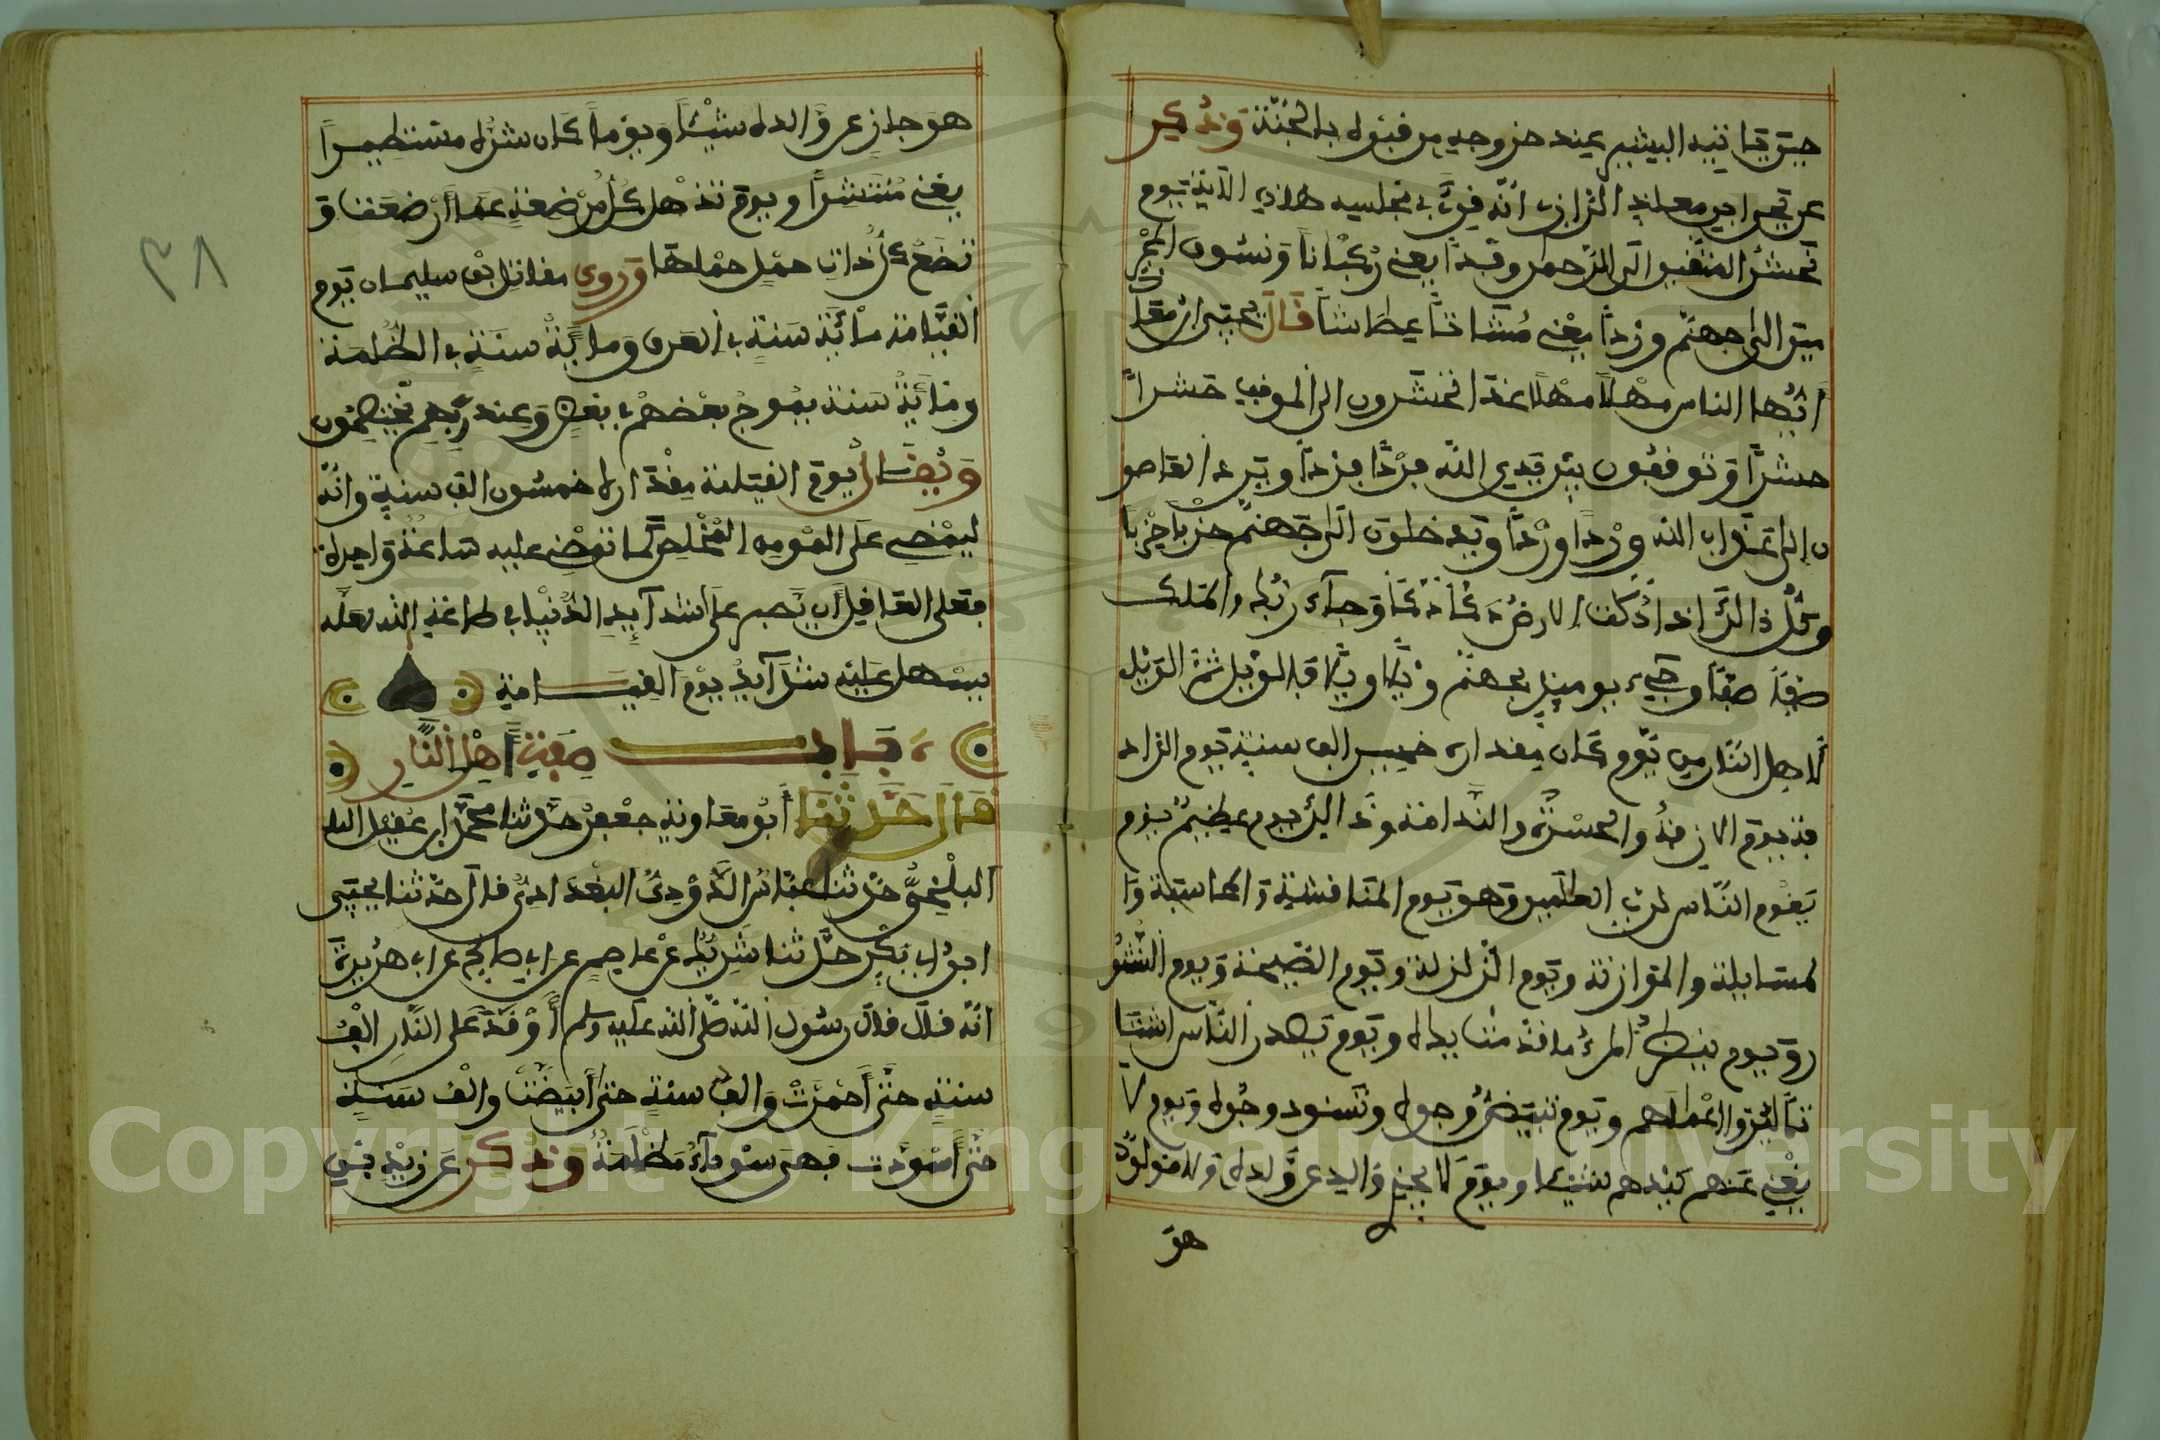 حتى ياتيه البشير عند خروجه من قبره بالجنة وذكر
عن يحي ابن معاذ الرازي انه قرئ في مجلسه هاذه الاية يوم
نحشر المتقين الى الرحمان وفدا يعني ركبانا ونسوق المجر
مين الى جهنم وردا يعني مشاتا عطاشا قال يحيى ابن معاذ
ايها الناس مهلا مهلا غدا تحشرون الى الموقف حشرا
حشرا وتوقفون بين يدي الله فردا فردا
ن الى عذاب الله وردا وردا ويدخلون الى جهنم حزبا حزبا
وكل ذالك اذا دكت الارض دكا دكا وجاء ربك والملك
صفا صفا وجيء يوميذ بجهنم ويلا ويلا فالويل ثم الويل
لاهل النار من يوم كان مقداره خمسين الف سنة يوم الراد
فة يوم الازفة والحسرة والندامة وذالك يوم عظيم يوم
يقوم الناس لرب العلمين وهو يوم المنافشة والمحاسبة وا
لمسايلة والموازنة ويوم الزلزلة ويوم الصيحة ويوم النشو
رويوم ينظر المرء ما قدمت يداه ويوم يصدر الناس اشتا
تا ليروا اعمالهم ويوم تبيض وجوه وتسود وجوه ويوم لا
يغني عنهم كيدهم شيئا ويوم لا يجزي والد عن ولده ولا مولود
هو
هو جاز عن والده شيئا ويوما كان شره مستطيرا
يعني منتشرا ويوم تذهل كل مرضعة عما ارضعت و
تضع كل ذات حمل حملها وروي مقاتل بن سليمان يوم
القيامة مائة سنة في العرق ومائة سنة في الظلمة
ومائة سنة يموج بعضهم في بعض وعند ربهم يختصمون
ويقال يوم القيامة مقداره خمسون الف سنة وانه
ليمضي على المومن المخلص كما تمضي عليه ساعة واحدة
فعلى العاقل ان يصبر على شدآيد الدنيا في طاعة الله لعله
يسهل عليه شدآيد يوم القيامة
باب صفة اهل النار
قال حدثنا ابو معاوية جعفر حدثنا محمد ابن عقيل
البلخي حدثنا عباس الدوري البغدادي قال حدثنا يحيى
ابن ابي بكر حدثنا شريك عن عاصم عن ابي صالح عن ابي هريرة
انه قال قال رسول الله صلى الله عليه وسلم اوقد على النار الف
سنة حتى احمرت والف سنة حتى ابيضت والف سنة
حتى اسودت فهي سودآء مظلمة وذكر عن زيد بن
٣٨
Copyright © King Saud University